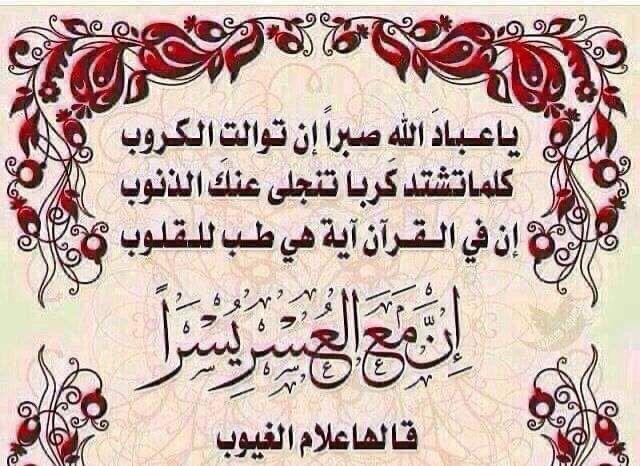 ياعبادَ الله صبراً إن توالت الكروب
كلماتشتد كَربا تنجلى عنكَ الذنوب
إن في القرآن آية هي طب للقلوب
إنَّ مَعَ العُسْرِ يُسْرَاً
قالهاعلام الغيوب